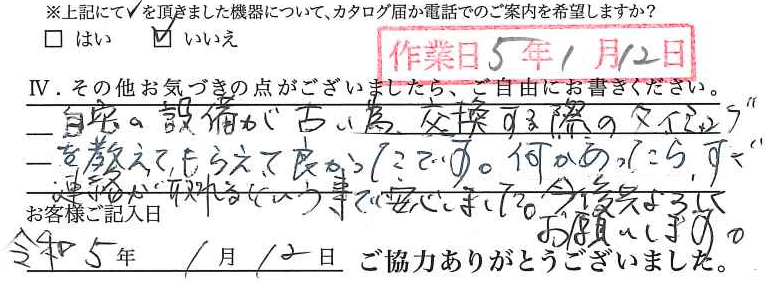 ※上記にて✓を頂きました機器について、カタログ届か電話でのご案内を希望しますか?
□ はい ☑ いいえ
作業日 5年1月12日
Ⅳ．その他お気づきの点がございましたら、ご自由にお書きください。
自宅の設備が古い為、交換する際のタイミング
を教えてもらえて良かったです。何かあったら、すぐ
連絡が取れるという事で安心しました。今後共よろしく
お願いします。
お客様ご記入日
令和5年 1月12日 ご協力ありがとうございました。